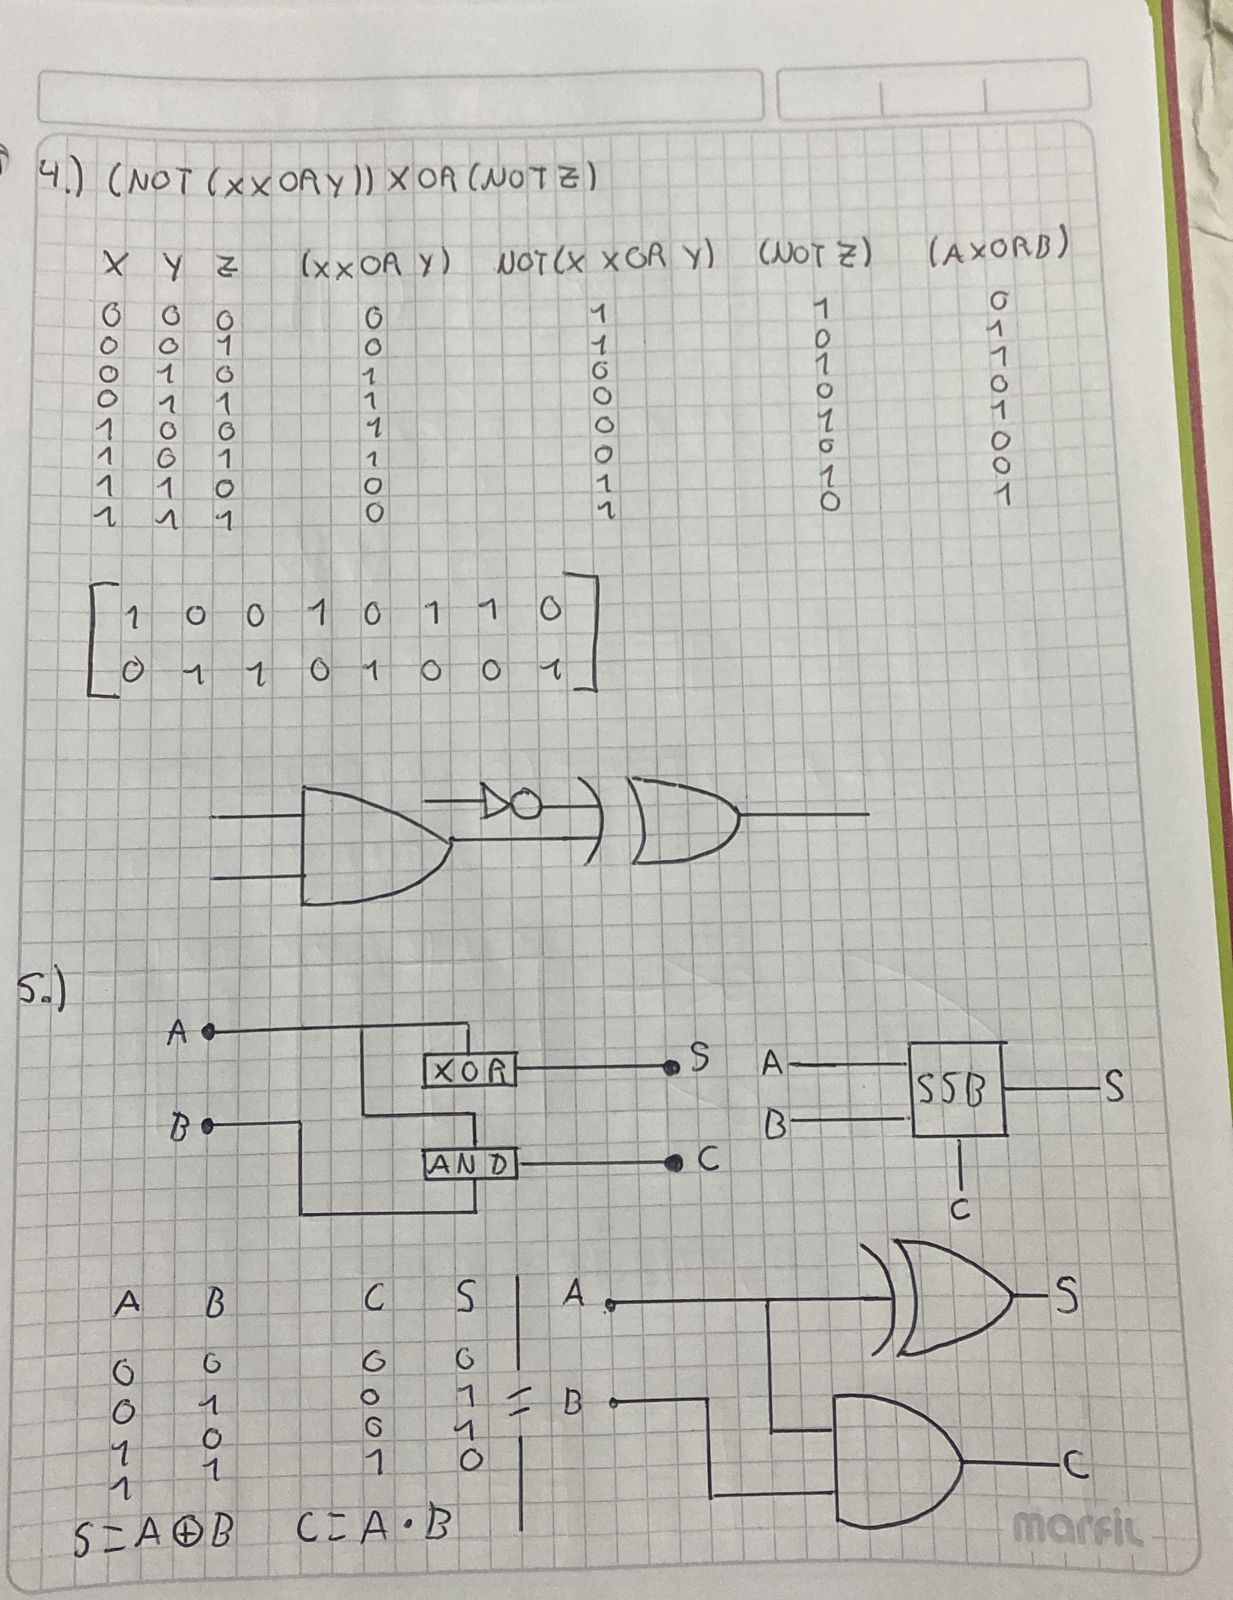 4.) (NOT (XXORY)) XOR (NOT Z)
X Y Z (XXOR Y) NOT(X XOR Y) (NOT Z) (AXORB)
0 0 0 0 1 1 0
0 0 1 0 1 0 1
0 1 0 1 0 1 1
0 1 1 1 0 0 0
1 0 0 1 0 1 1
1 0 1 1 0 0 0
1 1 0 0 1 1 0
1 1 1 0 1 0 1
1 0 0 1 0 1 1 0
0 1 1 0 1 0 0 1
5.)
A XOR S
B AND C
A SSB S
B
C
A B C S
0 0 0 0
0 1 0 1
1 0 0 1
1 1 1 0
S=A⊕B C=A·B
=
A S
B C
marfil